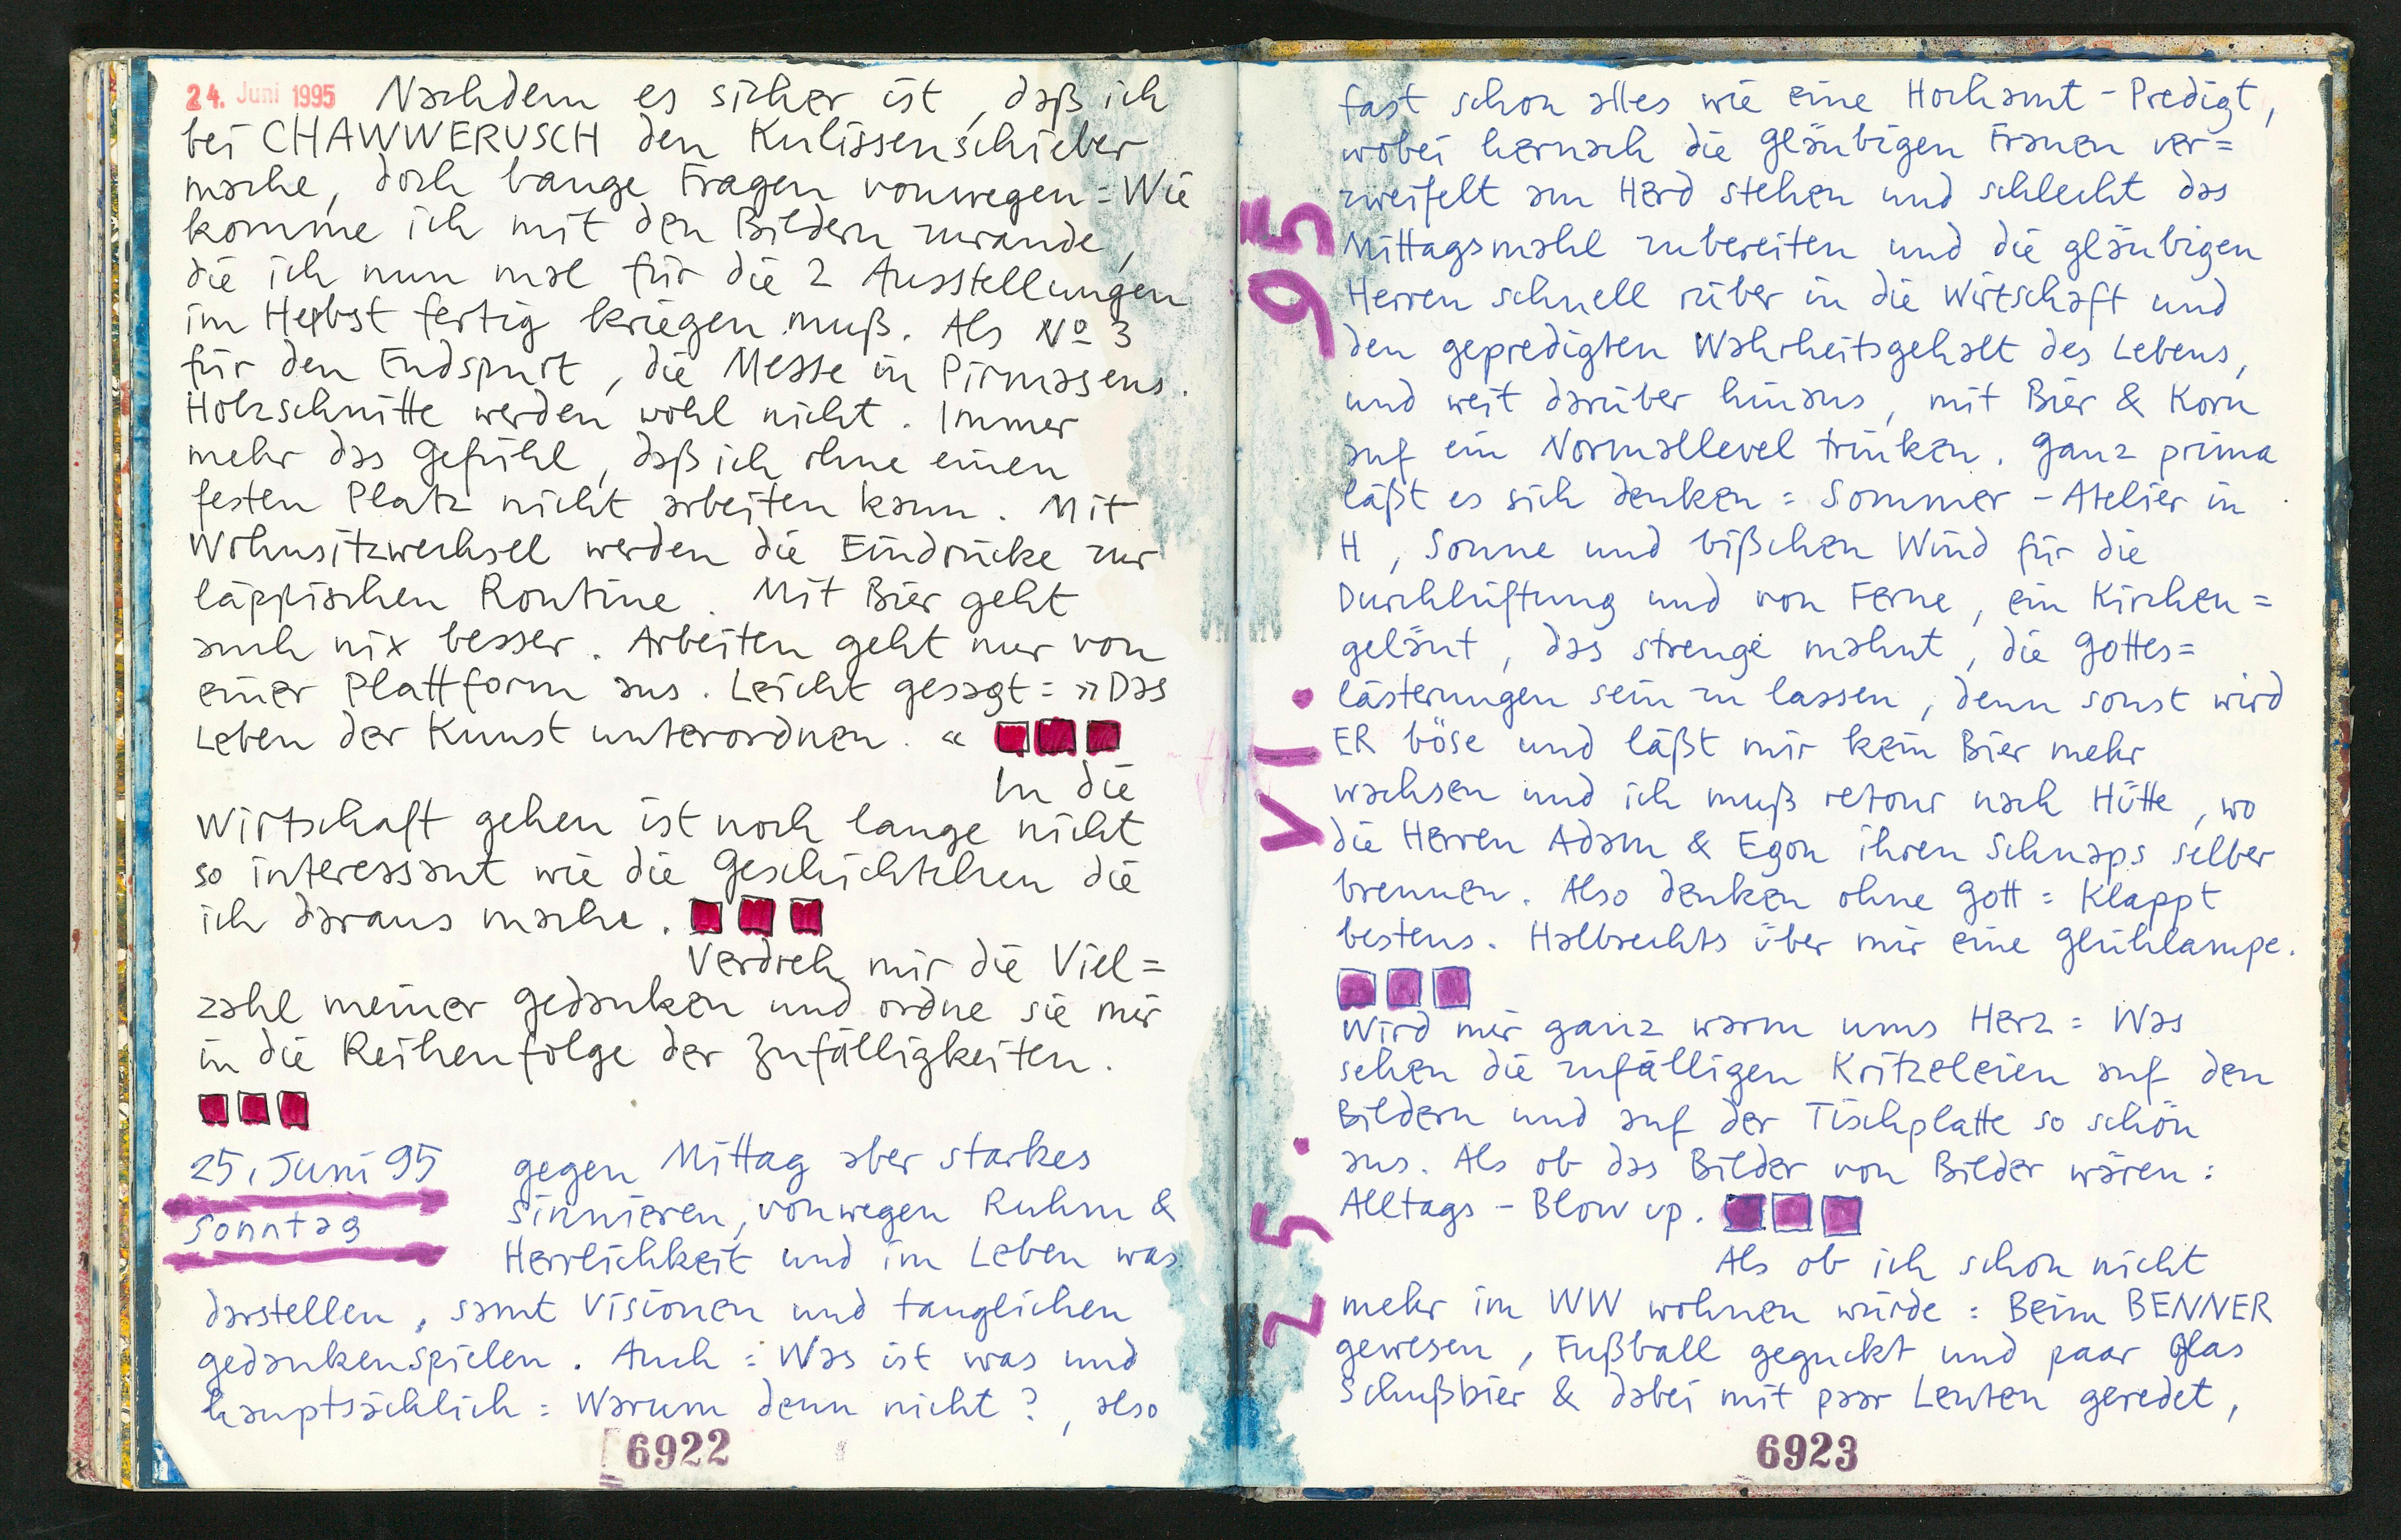 24. Juni 1995 Nachdem es sicher ist, daß ich
bei CHAWWERUSCH den Kulissenschieber
mache, doch bange Fragen vonwegen = Wie
komme ich mit den Bildern zurande,
die ich nun mal für die 2 Ausstellungen
im Herbst fertig kriegen muß. Als No 3
für den Endspurt, die Messe in Pirmasens.
Holzschnitte werden wohl nicht. Immer
mehr das Gefühl, daß ich ohne einen
festen Platz nicht arbeiten kann. Mit
Wohnsitzwechsel werden die Eindrücke zur
läppischen Routine. Mit Bier geht
auch nix besser. Arbeiten geht nur von
einer Plattform aus. Leicht gesagt = »Das
Leben der Kunst unterordnen. «
In die
Wirtschaft gehen ist noch lange nicht
so interessant wie die Geschichtchen die
ich daraus mache.
Verdreh mir die Viel=
zahl meiner Gedanken und ordne sie mir
in die Reihenfolge der Zufälligkeiten.
25. Juni 95 gegen Mittag aber starkes
Sonntag sinnieren, vonwegen Ruhm &
Herrlichkeit und im Leben was
darstellen, samt Visionen und tauglichen
Gedankenspielen. Auch = Was ist was und
hauptsächlich = Warum denn nicht?, also
6922
25. VI. 95
fast schon alles wie eine Hochamt-Predigt,
wobei hernach die gläubigen Frauen ver=
zweifelt am Herd stehen und schlecht das
Mittagsmahl zubereiten und die gläubigen
Herren schnell rüber in die Wirtschaft und
den gepredigten Wahrheitsgehalt des Lebens,
und weit darüber hinaus, mit Bier & Korn
auf ein Normallevel trinken. Ganz prima
läßt es sich denken = Sommer-Atelier in
H, Sonne und bißchen Wind für die
Durchlüftung und von Ferne, ein Kirchen=
geläut, das strenge mahnt, die Gottes=
lästerungen sein zu lassen, denn sonst wird
ER böse und läßt mir kein Bier mehr
wachsen und ich muß retour nach Hütte, wo
die Herren Adam & Egon ihren Schnaps selber
brennen. Also denken ohne Gott = Klappt
bestens. Halbrechts über mir eine Glühlampe.
Wird mir ganz warm ums Herz = Was
sehen die zufälligen Kritzeleien auf den
Bildern und auf der Tischplatte so schön
aus. Als ob das Bilder von Bilder wären :
Alltags-Blow up.
Als ob ich schon nicht
mehr im WW wohnen würde : Beim BENNER
gewesen, Fußball geguckt und paar Glas
Schußbier & dabei mit paar Leuten geredet,
6923